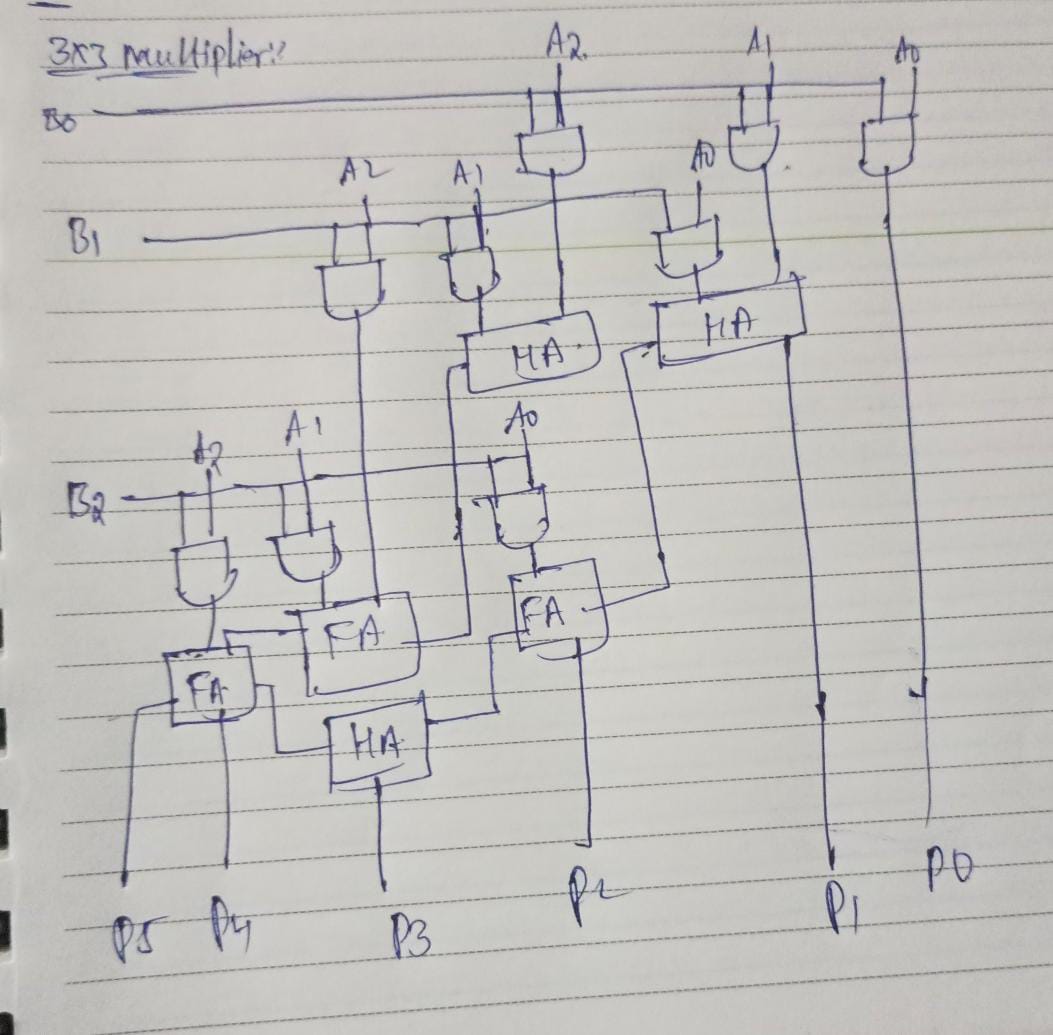 3x3 multiplier:
A2 A1 A0
B0
A2 A1 A0
B1
HA HA
A2 A1 A0
B2
FA FA
FA
HA
P5 P4 P3 P2 P1 P0